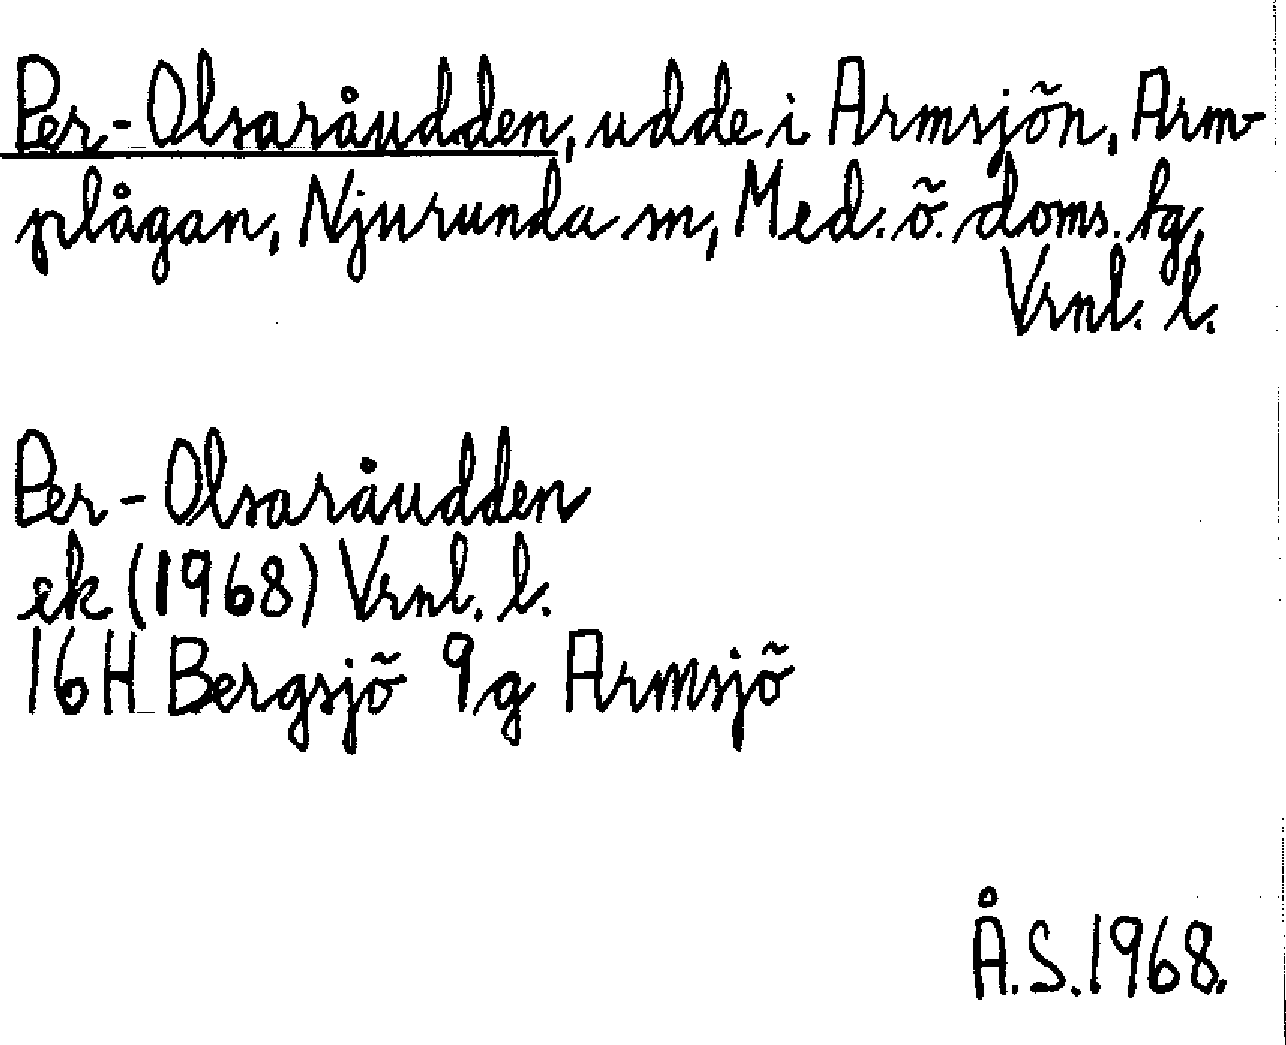 Per-Olsaråudden, udde i Armsjön, Arm-
plågan, Njurunda sn, Med. ö. doms. tg,
Vrnl. l.
Per-Olsaråudden
ek (1968) Vrnl. l.
16H Bergsjö 9g Armsjö
Å.S. 1968.